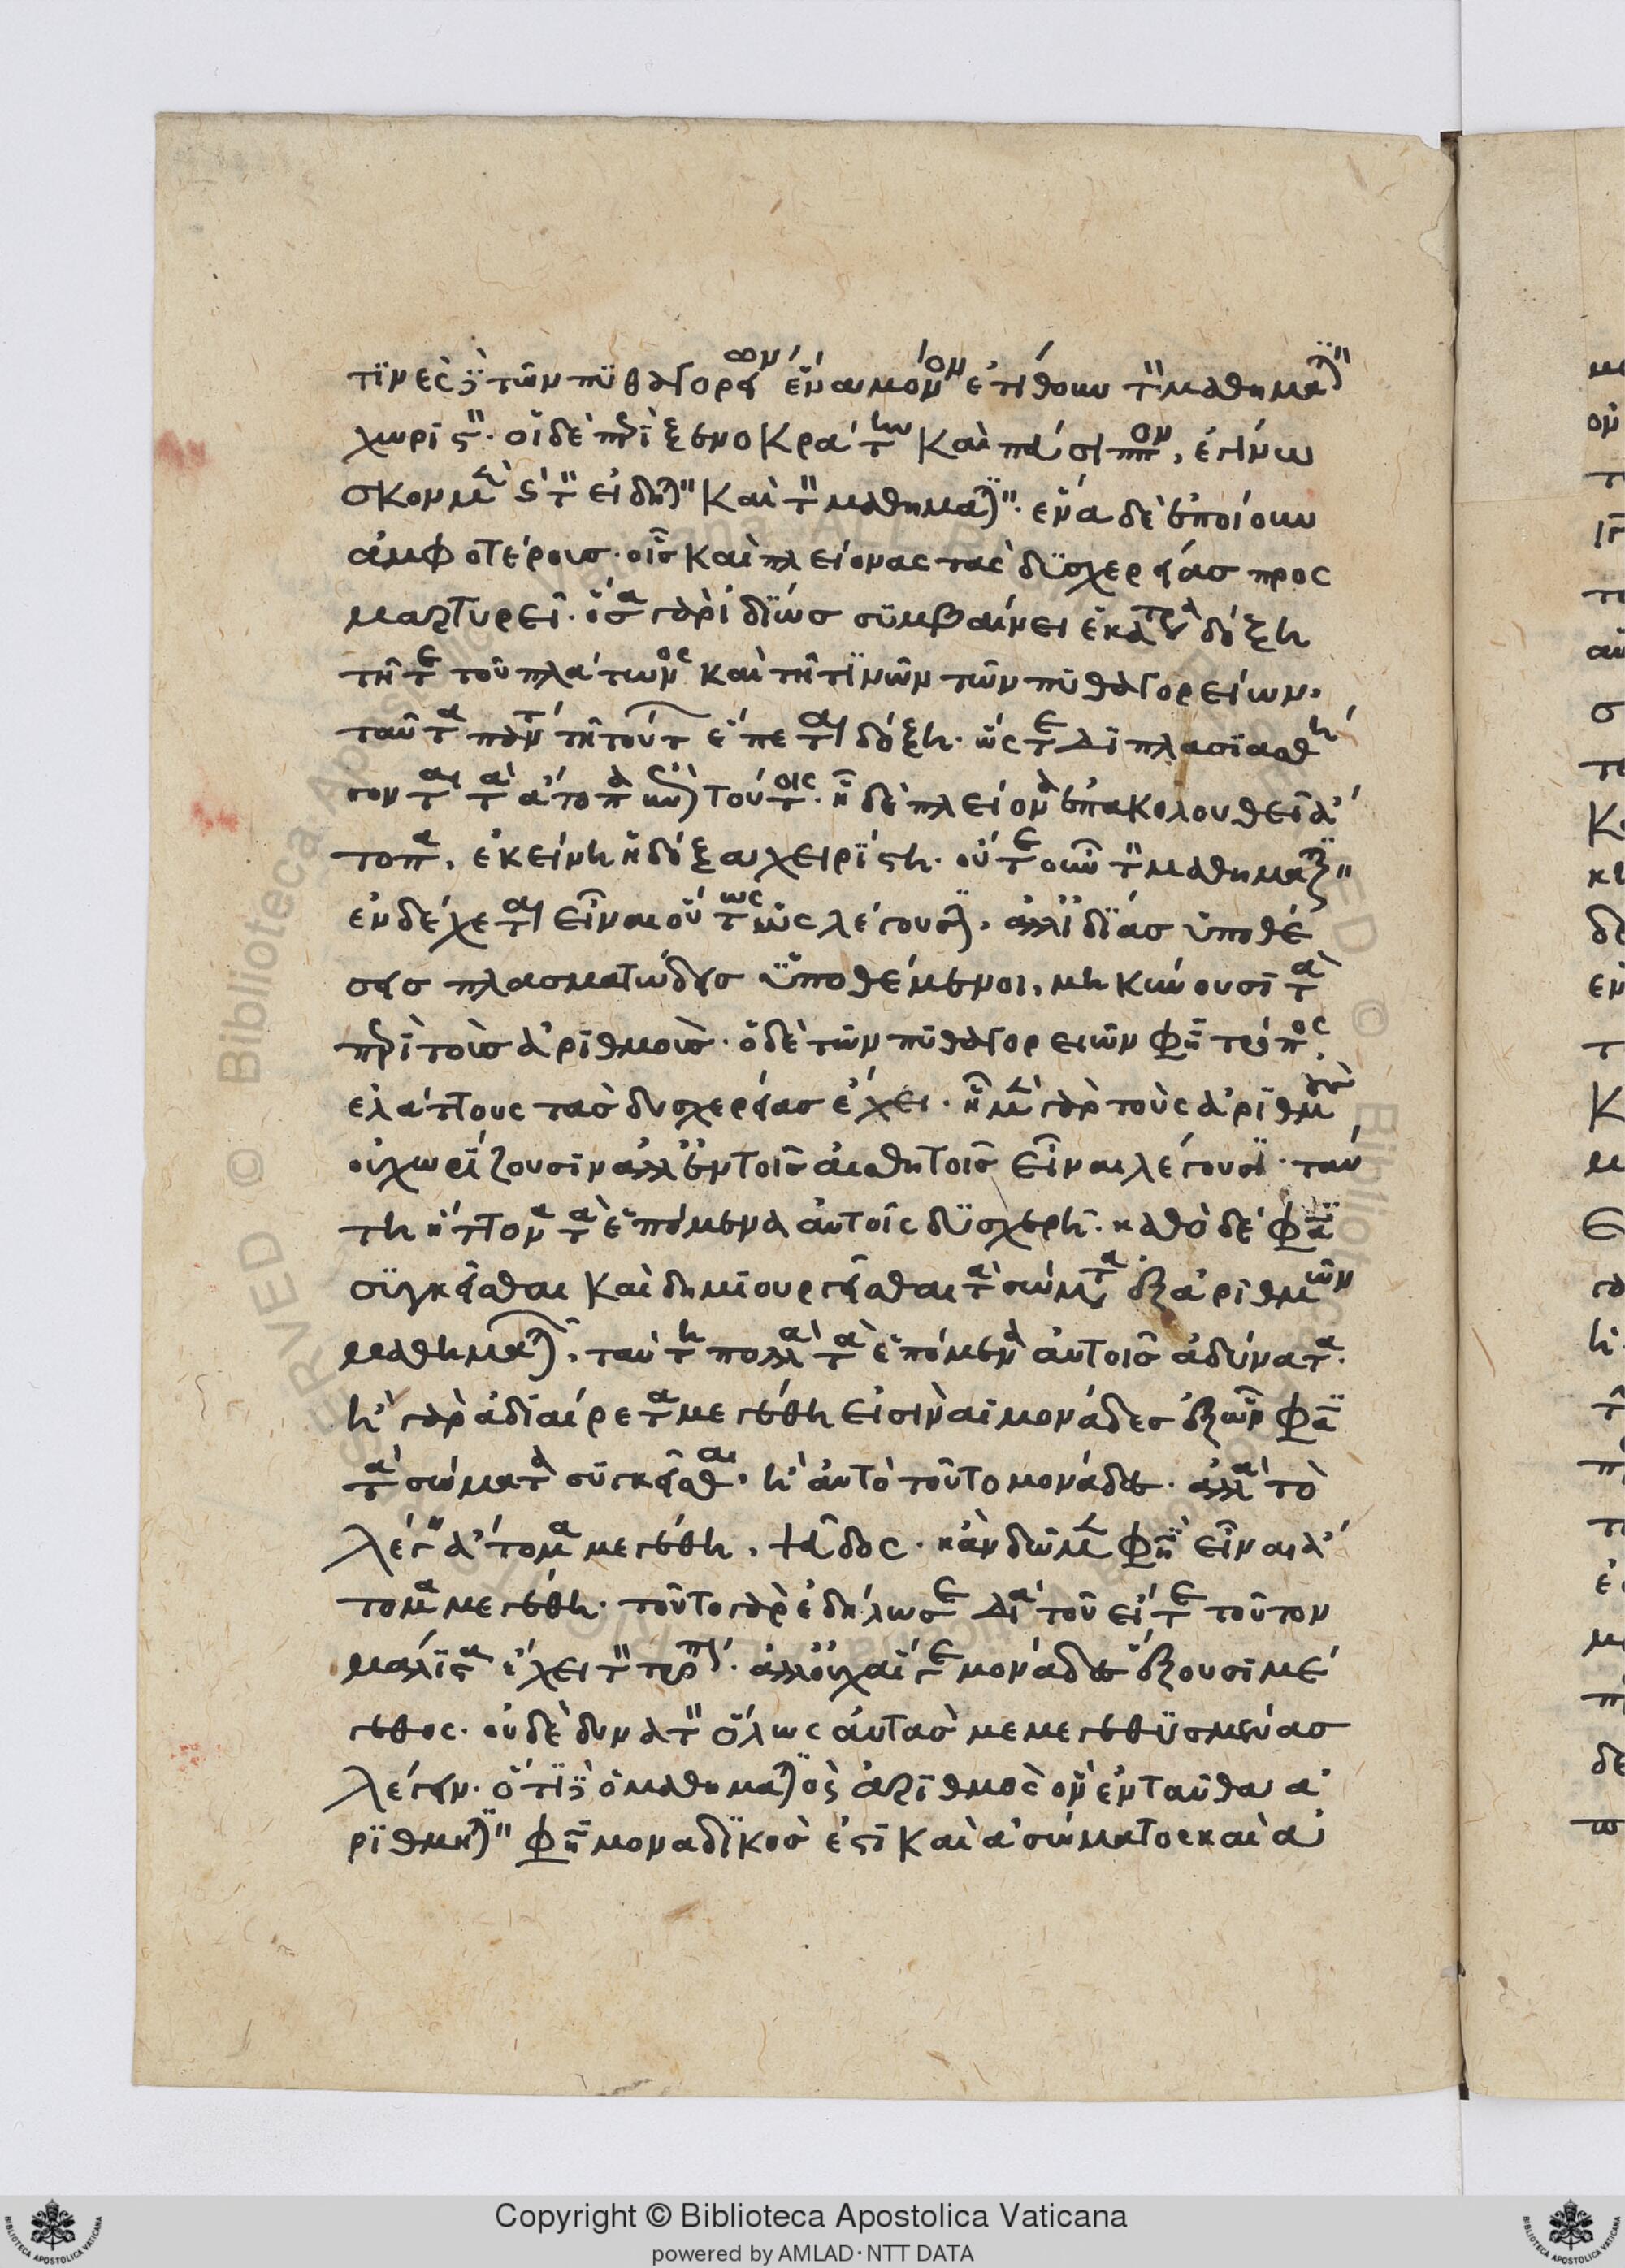 τϊνες δὲ τῶν πϋθαγορείων ἕνα μόνον ἐτίθουν τὸν μαθηματικὸν
χωριστόν. οἱ δὲ περὶ ξενοκράτην καὶ
σκον μὲν καὶ τὸν εἰδητικὸν καὶ τὸν μαθηματικόν. ἕνα δὲ ἐποίουν
ἀμφοτέρους. οἷς καὶ πλείονας τὰς δϋσχερείας προς
μαρτυρεῖ. ὅσα γὰρ ἰδίως σϋμβαίνει ἑκατέρα δόξη
τῆ τε τοῦ πλάτωνος καὶ τῆ τϊνῶν τῶν πϋθαγορείων.
ταῦτα πάντα τῆ τούτων ἕπεται δόξη. ὥστε διπλασϊασθή
σονται τὰ ἄτοπα τούτοις. ἧ δὲ πλείονα ἐπακολουθεῖ ἄ
τοπα, ἐκείνη ἡ δόξα χειρίστη. οὔτε οὖν τὸν μαθηματικὸν
ἐνδέχεται εἶναι οὕτως ὡς λέγουσιν. ἀλλ' ἰδίας ὑποθέ
σεις πλασματώδεις ὑποθέμενοι, μηκύνουσι τὰ
περὶ τοὺς ἀριθμοὺς. ὁ δὲ τῶν πϋθαγορειῶν φησι τρόπος
ἐλάττους τὰς δυσχερείας ἔχει. ἧ μὲν γὰρ τοὺς ἀριθμοὺς
οὐ χωρίζουσιν ἀλλ' ἐν τοῖς αἰσθητοῖς εἶναι λέγουσι. ταύ
τη ἥττονα τὰ ἑπόμενα αὐτοῖς δϋσχερῆ. καθὸ δέ φασι
σϋγκεῖσθαι καὶ δημιουργεῖσθαι τὰ σώματα ἐξ ἀριθμῶν
μαθηματικῶν, ταύτη πολλὰ τὰ ἑπόμενα αὐτοῖς ἀδύνατα.
ἢ γὰρ ἀδϊαίρετα μεγέθη εἰσὶν αἱ μονάδες ἐξ ὧν φασι
τὰ σώματα σϋγκεῖσθαι, ἢ αὐτὸ τοῦτο μονάδες. ἀλλὰ τὸ
λέγειν ἄτομα μεγέθη, ψεῦδος. κἂν δῶμεν φησὶν εἶναι ἄ
τομα μεγέθη. τοῦτο γὰρ ἐδήλωσε διὰ τοῦ εἴτε τοῦτον
μάλιστα ἔχει τὸν τρόπον. ἀλλ' οὐχ αἵ γε μονάδες ἕξουσι μέ
γεθος. οὐδὲ δυνατὸν ὅλως αὐτὰς μεμεγεθϋσμένας
λέγειν. ὅτι δὲ ὁ μαθηματικὸς ἀριθμὸς ὃν ἐνταῦθα ἀ
ριθμητικὸν φησὶ μοναδϊκός ἐστι καὶ ἀσώματος καὶ ἀ